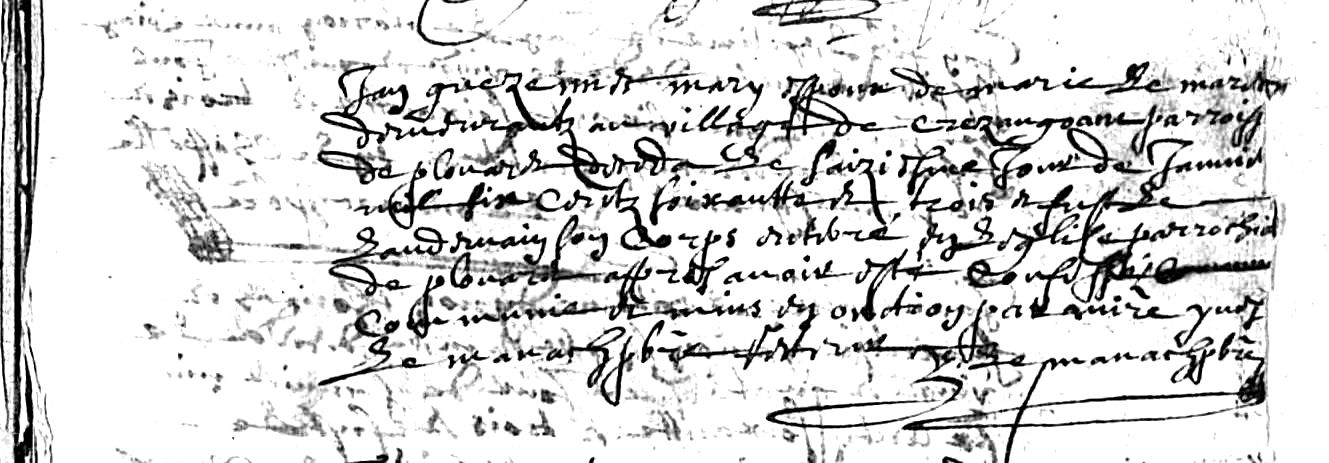 Jan guezennec mary espoux de marie le mar
demeurantz au village de crezangoam parrois
de plouaret deceda le saiziesme Jour de Janvie
mil six Centz soixantte et trois et fust le
landemain son Corps enterré en l'eglise parrochial
de plouaret appres avoir esté Confessé
Communié et mins en onction par avire yves
Le manach pbre Y: Le manach pbre